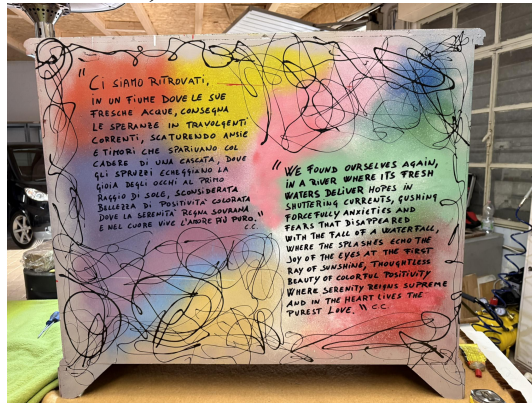 " CI SIAMO RITROVATI,
IN UN FIUME DOVE LE SUE
FRESCHE ACQUE, CONSEGNA
LE SPERANZE IN TRAVOLGENTI
CORRENTI, SCATURENDO ANSIE
E TIMORI CHE SPARIVANO COL
CADERE DI UNA CASCATA, DOVE
GLI SPRUZZI ECHEGGIANO LA
GIOIA DEGLI OCCHI AL PRIMO
RAGGIO DI SOLE, SCONSIDERATA
BELLEZZA DI POSITIVITÀ COLORATA
DOVE LA SERENITÀ REGNA SOVRANA
E NEL CUORE VIVE L'AMORE PIÙ PURO. "
C.C.
" WE FOUND OURSELVES AGAIN,
IN A RIVER WHERE ITS FRESH
WATERS DELIVER HOPES IN
SHUTTERING CURRENTS, GUSHING
FORCEFULLY ANXIETIES AND
FEARS THAT DISAPPEARED
WITH THE FALL OF A WATERFALL,
WHERE THE SPLASHES ECHO THE
JOY OF THE EYES AT THE FIRST
RAY OF SUNSHINE, THOUGHTLESS
BEAUTY OF COLORFUL POSITIVITY
WHERE SERENITY REIGNS SUPREME
AND IN THE HEART LIVES THE
PUREST LOVE. " C.C.